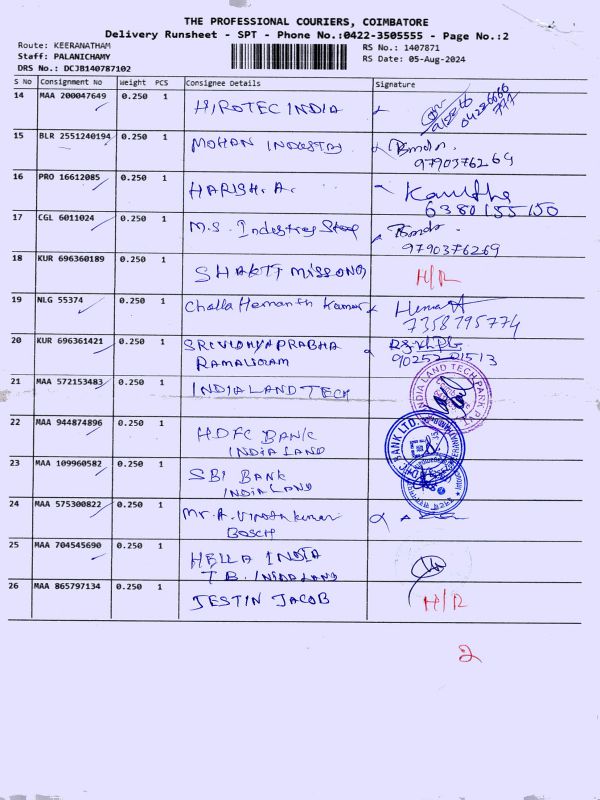 THE PROFESSIONAL COURIERS, COIMBATORE
Delivery Runsheet - SPT - Phone No.:0422-3505555 - Page No.:2
Route: KEERANATHAM
Staff: PALANICHAMY
DRS No.: DCJB140787102
RS No.: 1407871
RS Date: 05-Aug-2024
S No Consignment No Weight PCS Consignee Details Signature
14 MAA 200047649 0.250 1 HIROTEC INDIA
15 BLR 2551240194 0.250 1 MOHAN INDUSTRY
9790376269
16 PRO 16612085 0.250 1 HARISH. A. Kavitha
6380155150
17 CGL 6011024 0.250 1 M.S. Industrey
9790376269
18 KUR 696360189 0.250 1 SHAKTI MISSONG H/R
19 NLG 55374 0.250 1 Challa Hemanth Kumar
7358795774
20 KUR 696361421 0.250 1 SRIVIDHYAPRABHA
RAMALINGAM 90252
21 MAA 572153483 0.250 1 INDIALAND TECH INDIA LAND TECH PARK PVT
22 MAA 944874896 0.250 1 HDFC BANK
INDIA LAND
BANK LTD.
23 MAA 109960582 0.250 1 SBI BANK
INDIA LAND
24 MAA 575300822 0.250 1 Mr. A. Vinothkumar
BOSCH
25 MAA 704545690 0.250 1 HELLA INDIA
T.B. INDIALAND
26 MAA 865797134 0.250 1 JESTIN JACOB H/R
2